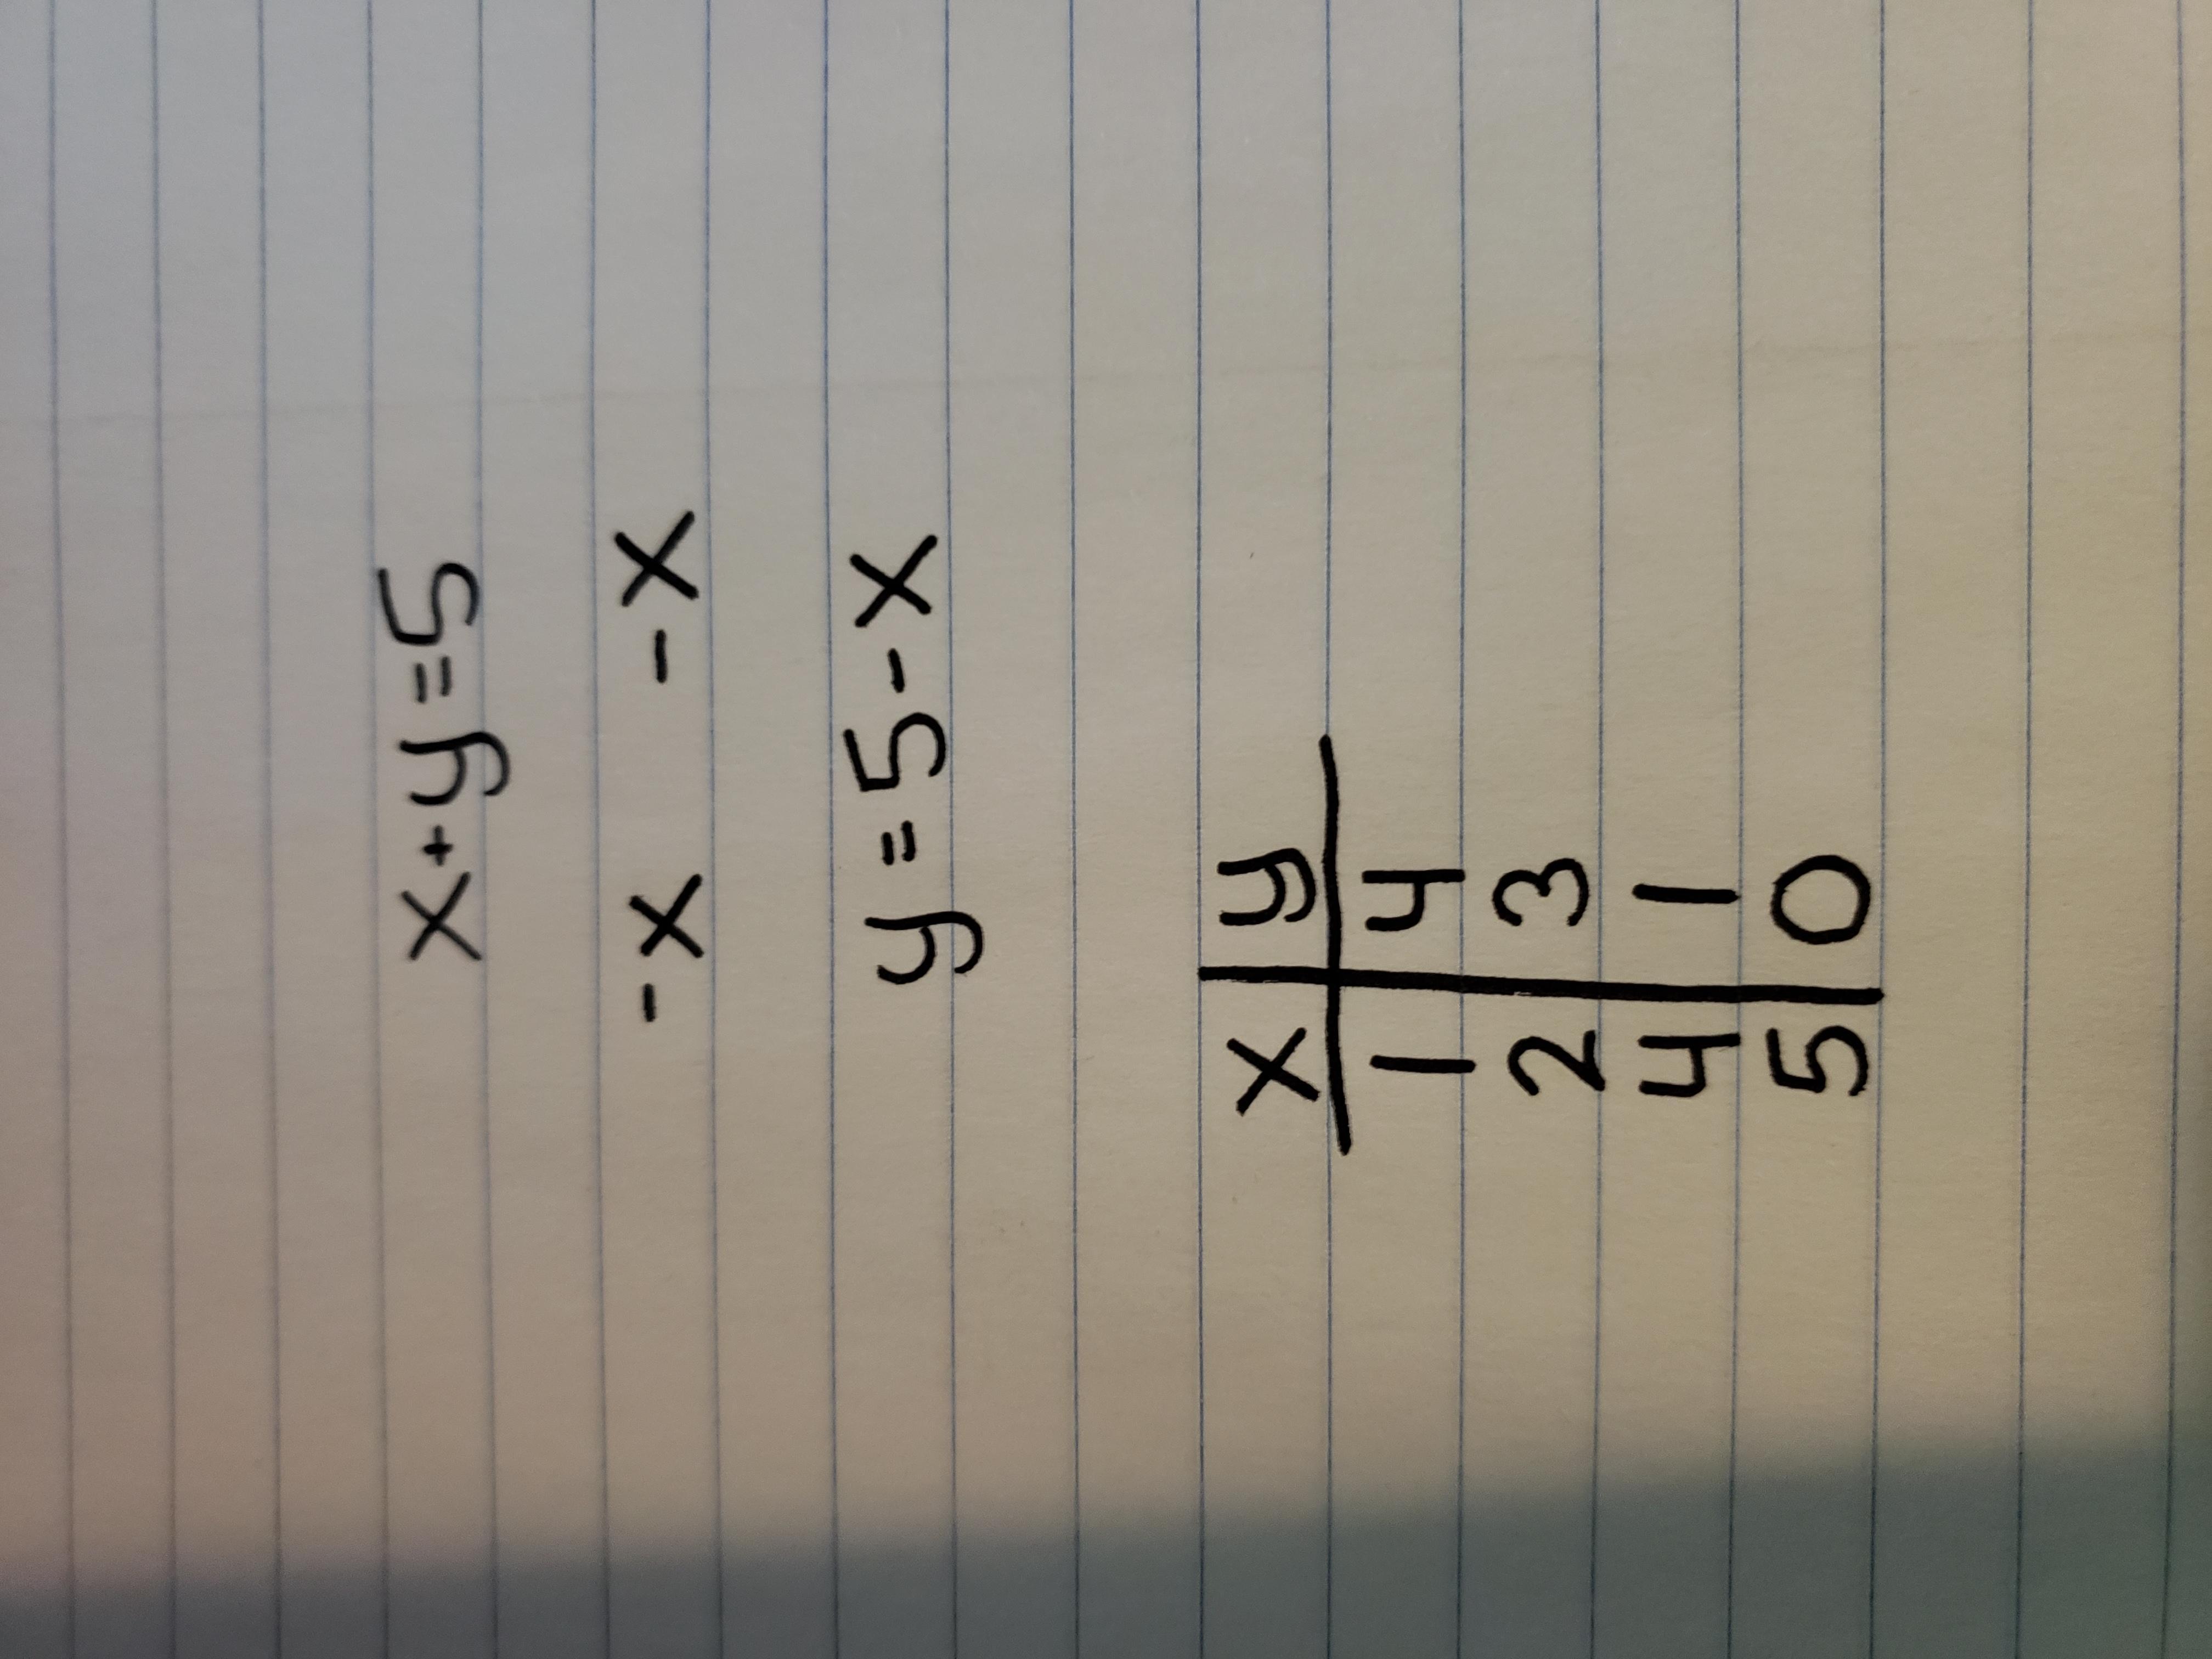 x+y=5
-x -x
y=5-x
x y
1 4
2 3
4 1
5 0